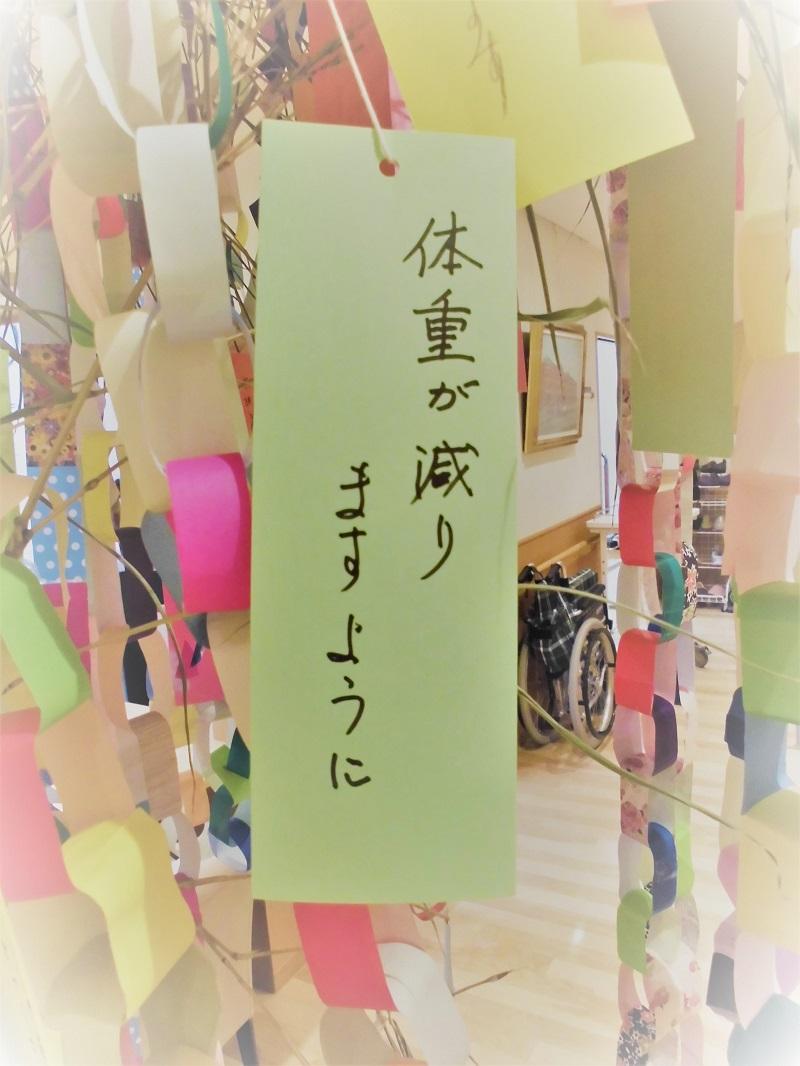 体重が減り
ますように